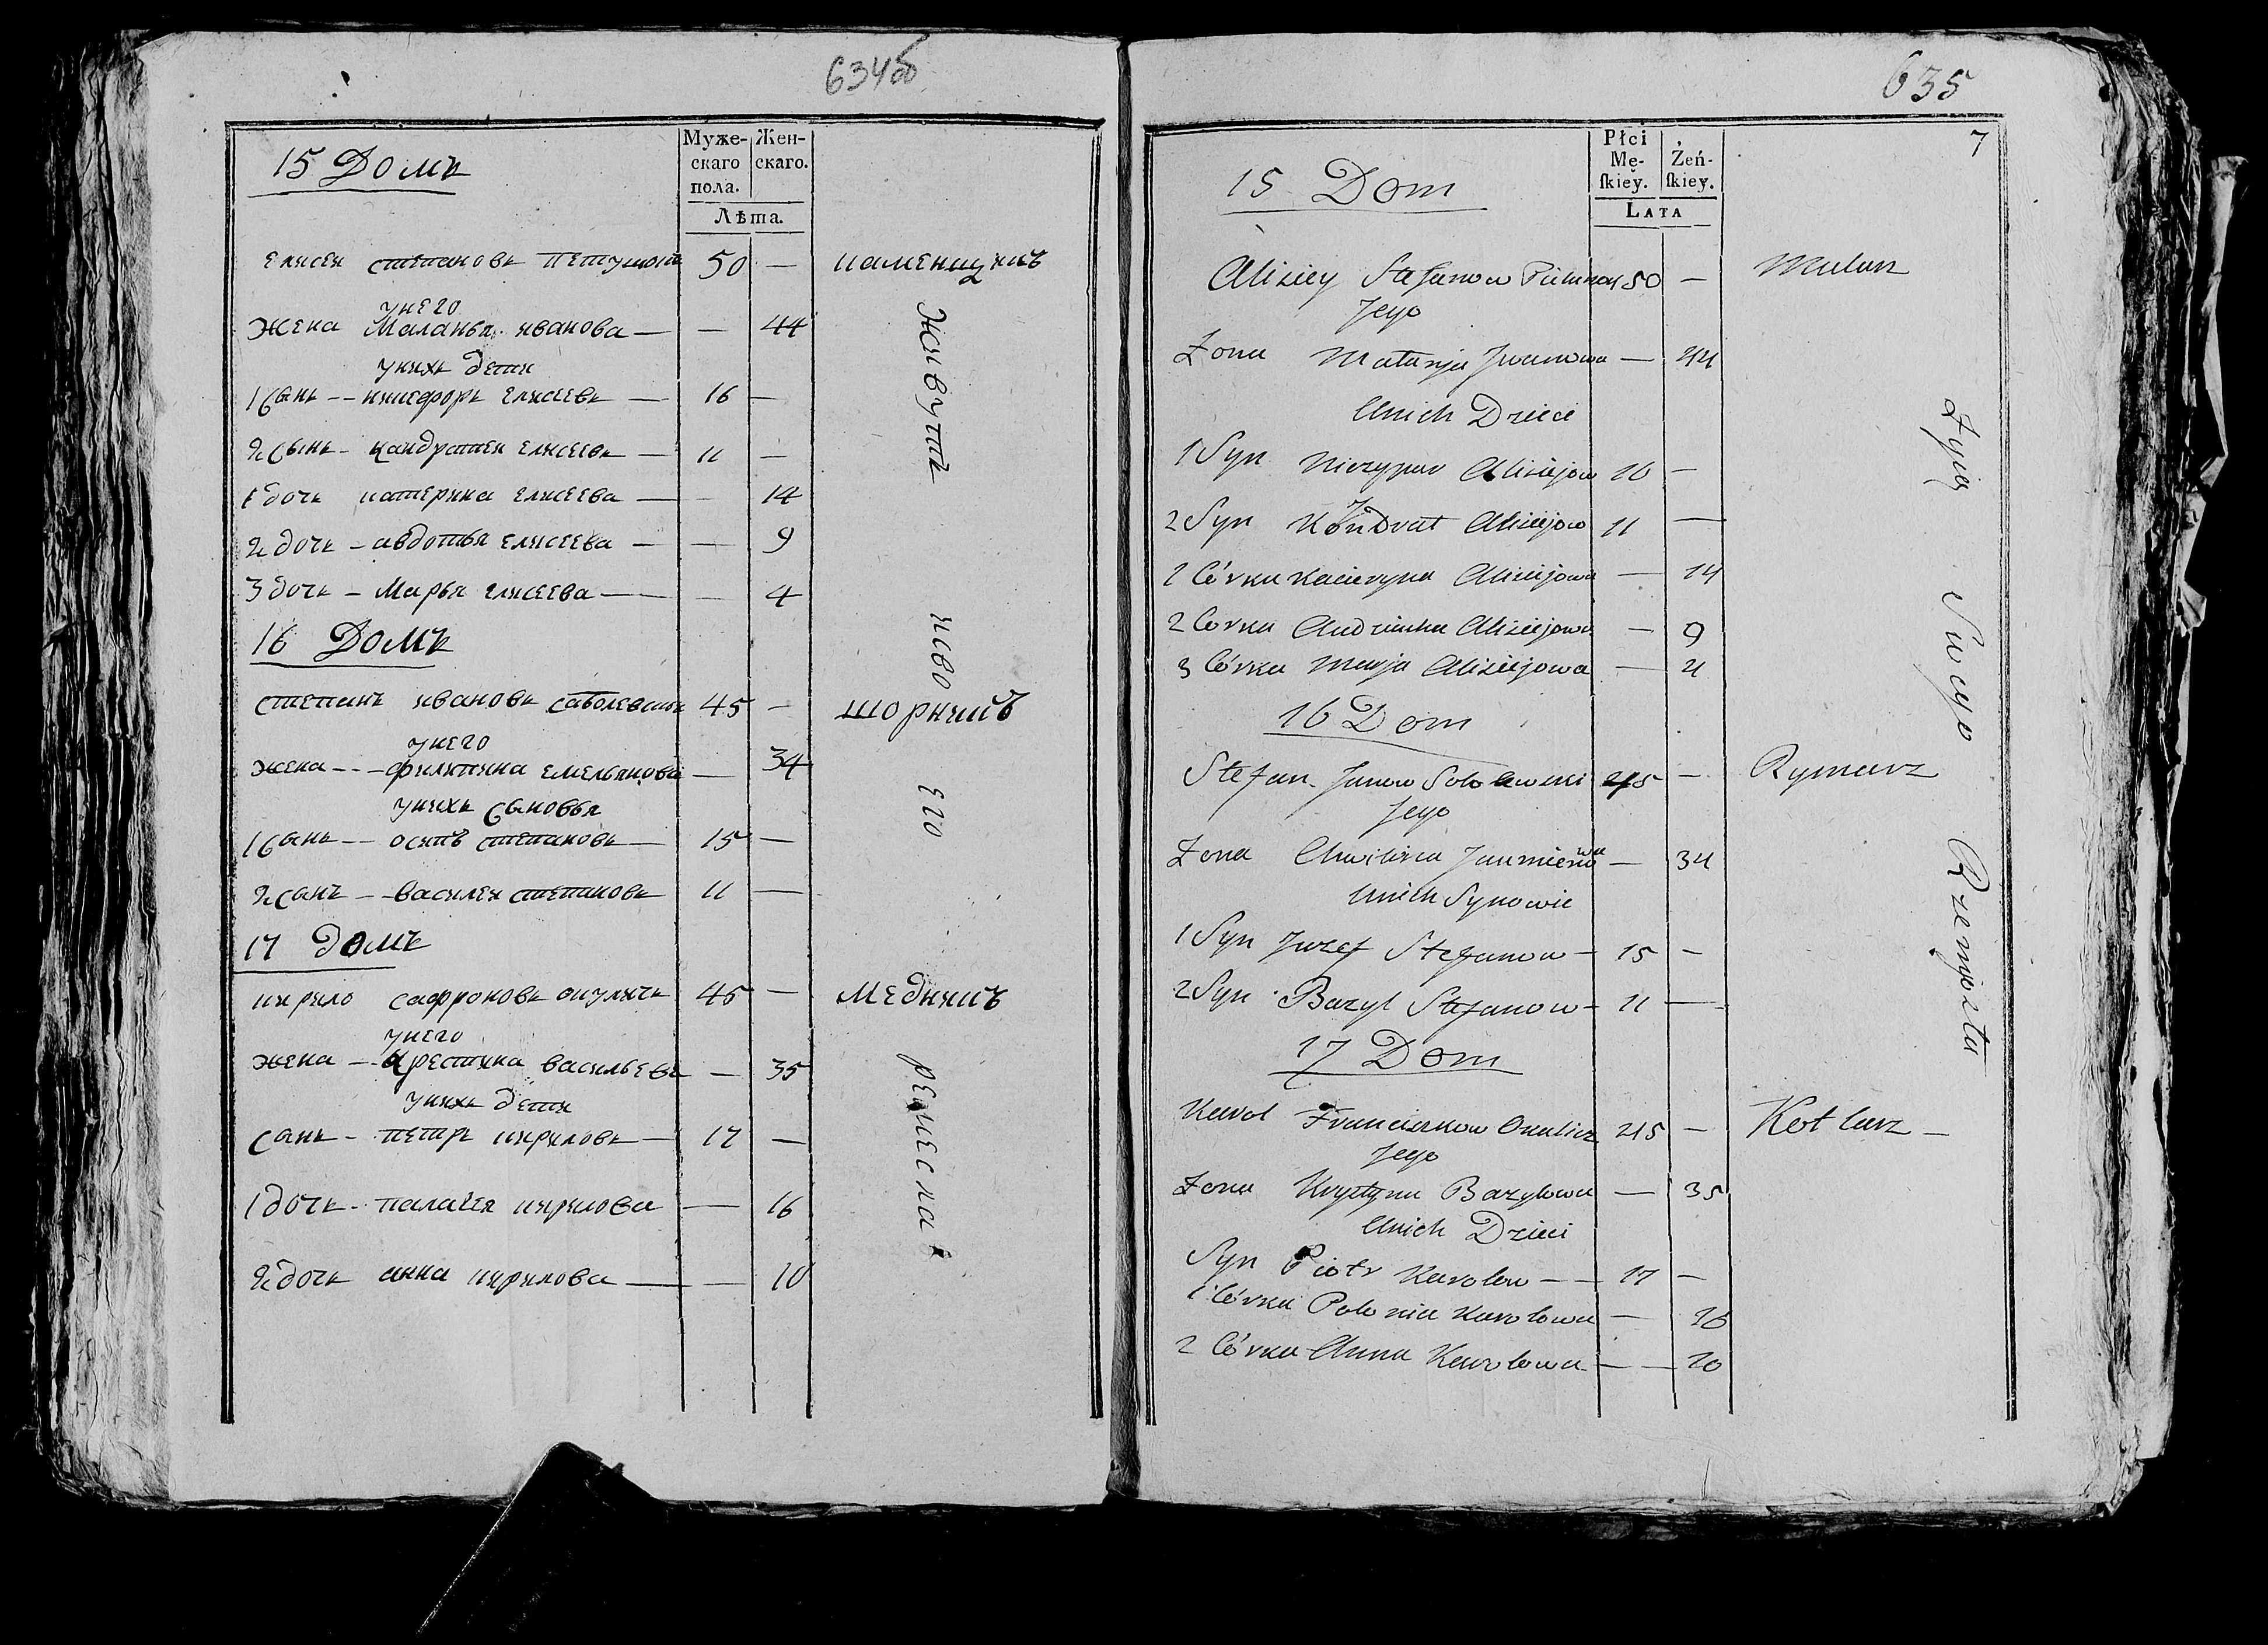 634об
Муже- Жен-
скаго скаго.
пола.
Лѣта.
15 Домъ
Елисеи степановъ петушокъ 50 — каменщикъ
унего
жена Маланья иванова — — 44
унихъ дети
1 сынъ -- никифоръ Елисеевъ — 16 —
2 сынъ - кандратеи Елисеевъ — 11 —
1 дочь катерина Елисеева — — 14
2 дочь - авдотья Елисеева — — 9
3 дочь - Марья Елисеева — — 4
16 Домъ
степанъ ивановъ саболевскиі 45 — шорникъ
унего
жена --- филипина Емельянова — 34
унихъ сыновья
1 сынъ -- осипъ степановъ — 15 —
2 сынъ -- василеи степановъ 11 —
17 домъ
кирило сафроновъ акуличь 45 — медникъ
унего
жена -- крестина васильева — 35
унихъ дети
сынъ - петръ кириловъ — 17 —
1 дочь - палагея кирилова — 16
2 дочь анна кирилова — — 10
живутъ исво его ремесла
635
7
Płci
Mę- Żeń-
skiey. skiey.
LATA
15 Dom
Aliziey Stefanow Pietuszok 50 — Mularz
Jego
Żona Małanja Jwanowa — 44
Unich Dzieci
1 Syn Niczypor Aliziejow 16 —
2 Syn Kondrat Aliziejow 11 —
1 Córka Kacieryna Aliziejowa — 14
2 Corka Audziuchа Aliziejowa — 9
3 Córka Marja Aliziejowa — 4
16 Dom
Stefan Janow Sobolewski 45 — Rymarz
Jego
Żona Chwilina Jaumienowa — 34
Unich Synowie
1 Syn Juzef Stefanow - 15 —
2 Syn Bazyl Stefanow - 11 —
17 Dom
Karol Franciszkow Okulicz 45 — Kotlarz —
Jego
Żona Krystyna Bazylowa — 35
Unich Dzieci
Syn Piotr Karolow — — 17 —
1 Córka Polonia Karolowa — 16
2 Córka Anna Karolowa — — 10
Żyią Swego Rzemiosła